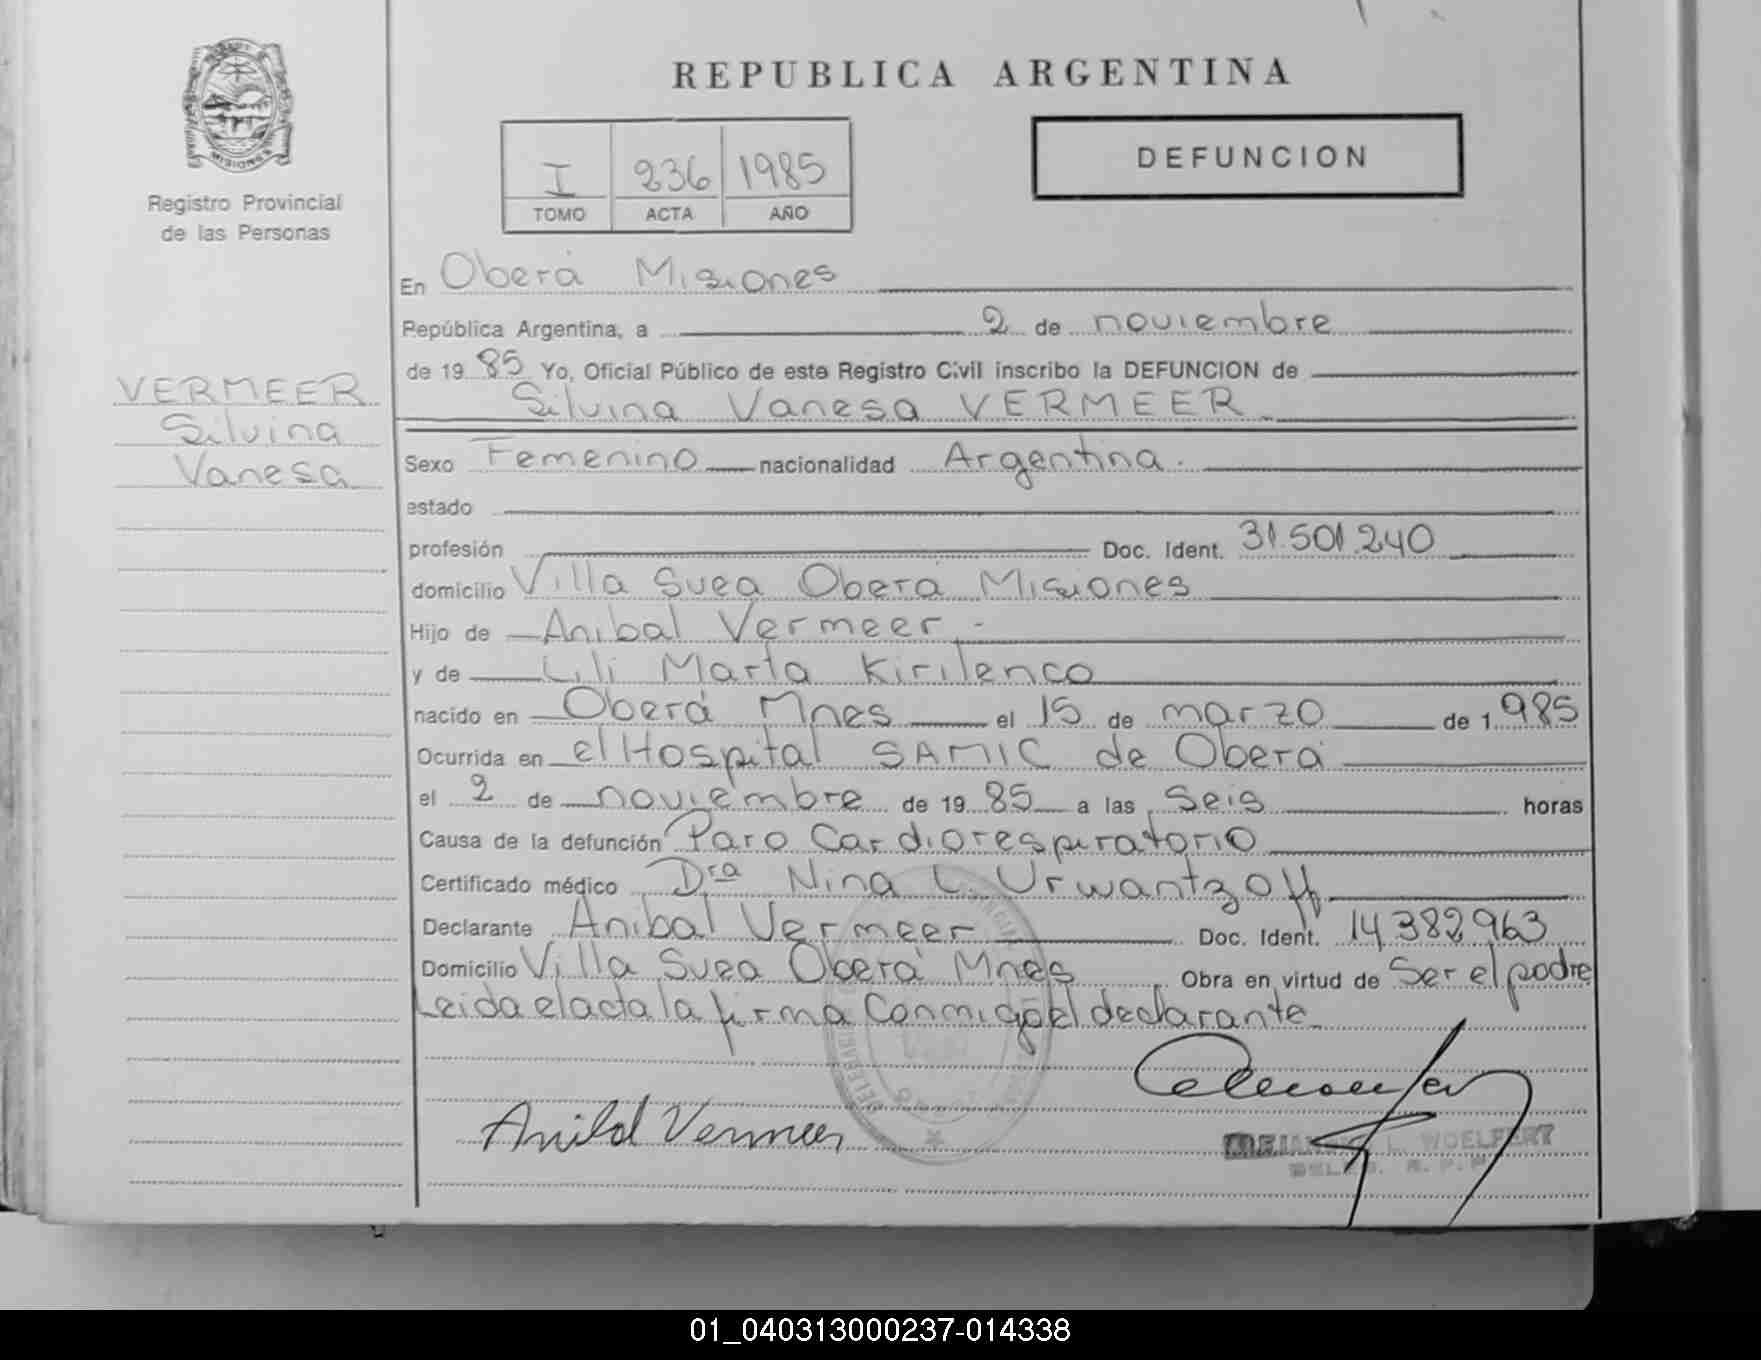 MISIONES
Registro Provincial
de las Personas
VERMEER
Silvina
Vanesa
REPUBLICA ARGENTINA
I 236 1985
TOMO ACTA AÑO
DEFUNCION
En Oberá Misiones
República Argentina, a 2 de noviembre
de 19 85 Yo, Oficial Público de este Registro Civil inscribo la DEFUNCION de
Silvina Vanesa VERMEER
Sexo Femenino nacionalidad Argentina.
estado
profesión Doc. Ident. 31.501.240
domicilio Villa Svea Oberá Misiones
Hijo de Anibal Vermeer.-
y de Lili Marta Kirilenco
nacido en Oberá Mnes el 15 de marzo de 1.985
Ocurrida en el Hospital SAMIC de Oberá
el 2 de noviembre de 19 85 a las seis horas
Causa de la defunción Paro Cardiorespiratorio
Certificado médico Dra Nina L. Urwantzoff
Declarante Anibal Vermeer Doc. Ident. 14382963
Domicilio Villa Svea Oberá Mnes Obra en virtud de Ser el padre
Leida el acta la firma Conmigo el declarante
Anibal Vermeer
L. WOELFERT
01_040313000237-014338